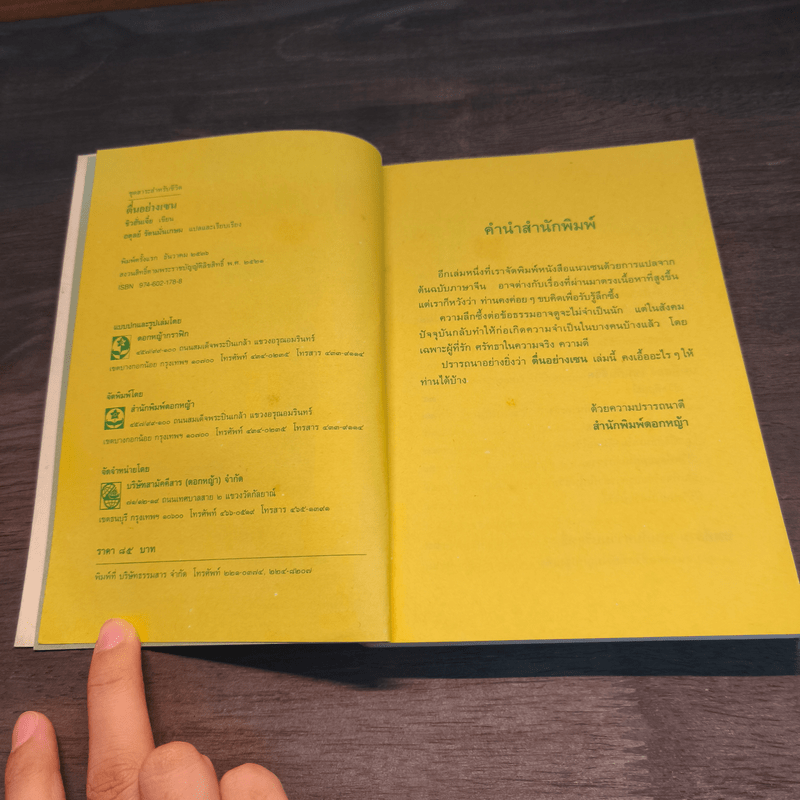 ชุดสาระสำหรับชีวิต
ตื่นอย่างเซน
เขียน
แปลและเรียบเรียง
พิมพ์ครั้งแรก ธันวาคม
สงวนสิทธิ์ตามพระราชบัญญัติลิขสิทธิ์ พ.ศ. ๒๕๒๑
ISBN 974-602-178-8
แบบปกและรูปเล่มโดย
ดอกหญ้ากราฟิก
๔๕๗/๙๙-๑๐๐ ถนนสมเด็จพระปิ่นเกล้า แขวงอรุณอมรินทร์
เขตบางกอกน้อย กรุงเทพฯ ๑๐๗๐๐ โทรศัพท์ ๔๓๔-๐๒๓๕ โทรสาร ๔๓๓-๙๑๑๔
จัดพิมพ์โดย
สำนักพิมพ์ดอกหญ้า
๔๕๗/๙๙-๑๐๐ ถนนสมเด็จพระปิ่นเกล้า แขวงอรุณอมรินทร์
เขตบางกอกน้อย กรุงเทพฯ ๑๐๗๐๐ โทรศัพท์ ๔๓๔-๐๒๓๕ โทรสาร ๔๓๓-๙๑๑๔
จัดจำหน่ายโดย
บริษัทสามัคคีสาร (ดอกหญ้า) จำกัด
๗๑/๑๒-๑๔ ถนนเทศบาลสาย ๒ แขวงวัดกัลยาณ์
เขตธนบุรี กรุงเทพฯ ๑๐๖๐๐ โทรศัพท์ โทรสาร ๔๖๕-๑๓๙๑
ราคา ๘๕ บาท
พิมพ์ที่ บริษัทธรรมสาร จำกัด โทรศัพท์ ๒๒๑-๐๓๗๔, ๒๒๔-๘๒๐๗
คำนำสำนักพิมพ์
อีกเล่มหนึ่งที่เราจัดพิมพ์หนังสือแนวเซนด้วยการแปลจาก
ต้นฉบับภาษาจีน อาจต่างกับเรื่องที่ผ่านมาตรงเนื้อหาที่สูงขึ้น
แต่เราก็หวังว่า ท่านคงค่อยๆ ขบคิดเพื่อรับรู้ลึกซึ้ง
ความลึกซึ้งต่อข้อธรรมอาจดูจะไม่จำเป็นนัก แต่ในสังคม
ปัจจุบันกลับทำให้ก่อเกิดความจำเป็นในบางคนบ้างแล้ว โดย
เฉพาะผู้ที่รัก ศรัทธาในความจริง ความดี
ปรารถนาอย่างยิ่งว่า ตื่นอย่างเซน เล่มนี้ คงเอื้ออะไรๆ ให้
ท่านได้บ้าง
ด้วยความปรารถนาดี
สำนักพิมพ์ดอกหญ้า